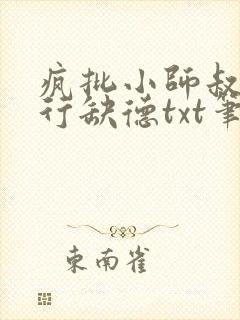 疯批小師叔
行缺德txt筆
東南雀